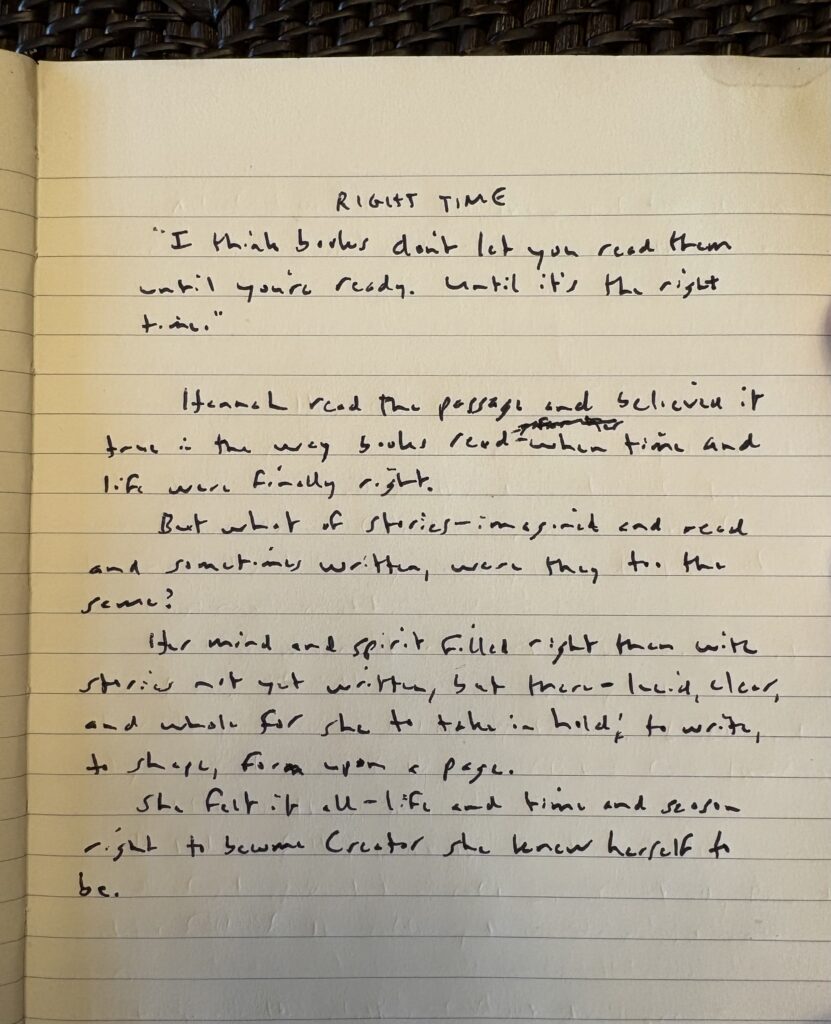 RIGHT TIME
"I think books don't let you read them
until you're ready. Until it's the right
time."
Hannah read the passage and believed it
true in the way books read-when time and
life were finally right.
But what of stories-imagined and read
and sometimes written, were they too the
same?
Her mind and spirit filled right then with
stories not yet written, but there-lucid, clear,
and whole for she to take in hold; to write,
to shape, form upon a page.
She felt it all-life and time and season
right to become Creator she knew herself to
be.